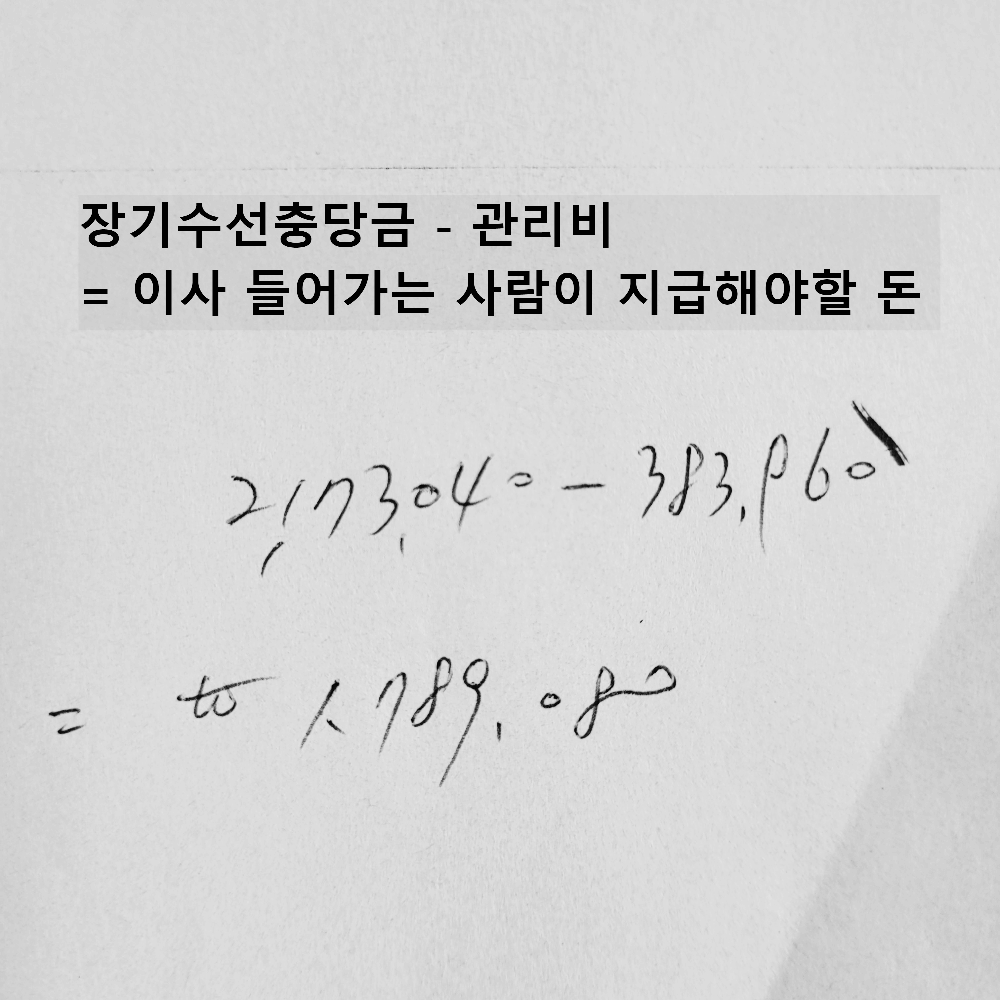 장기수선충당금 - 관리비
= 이사 들어가는 사람이 지급해야할 돈
2,173,040 - 383,960
= ₩ 1,789,080